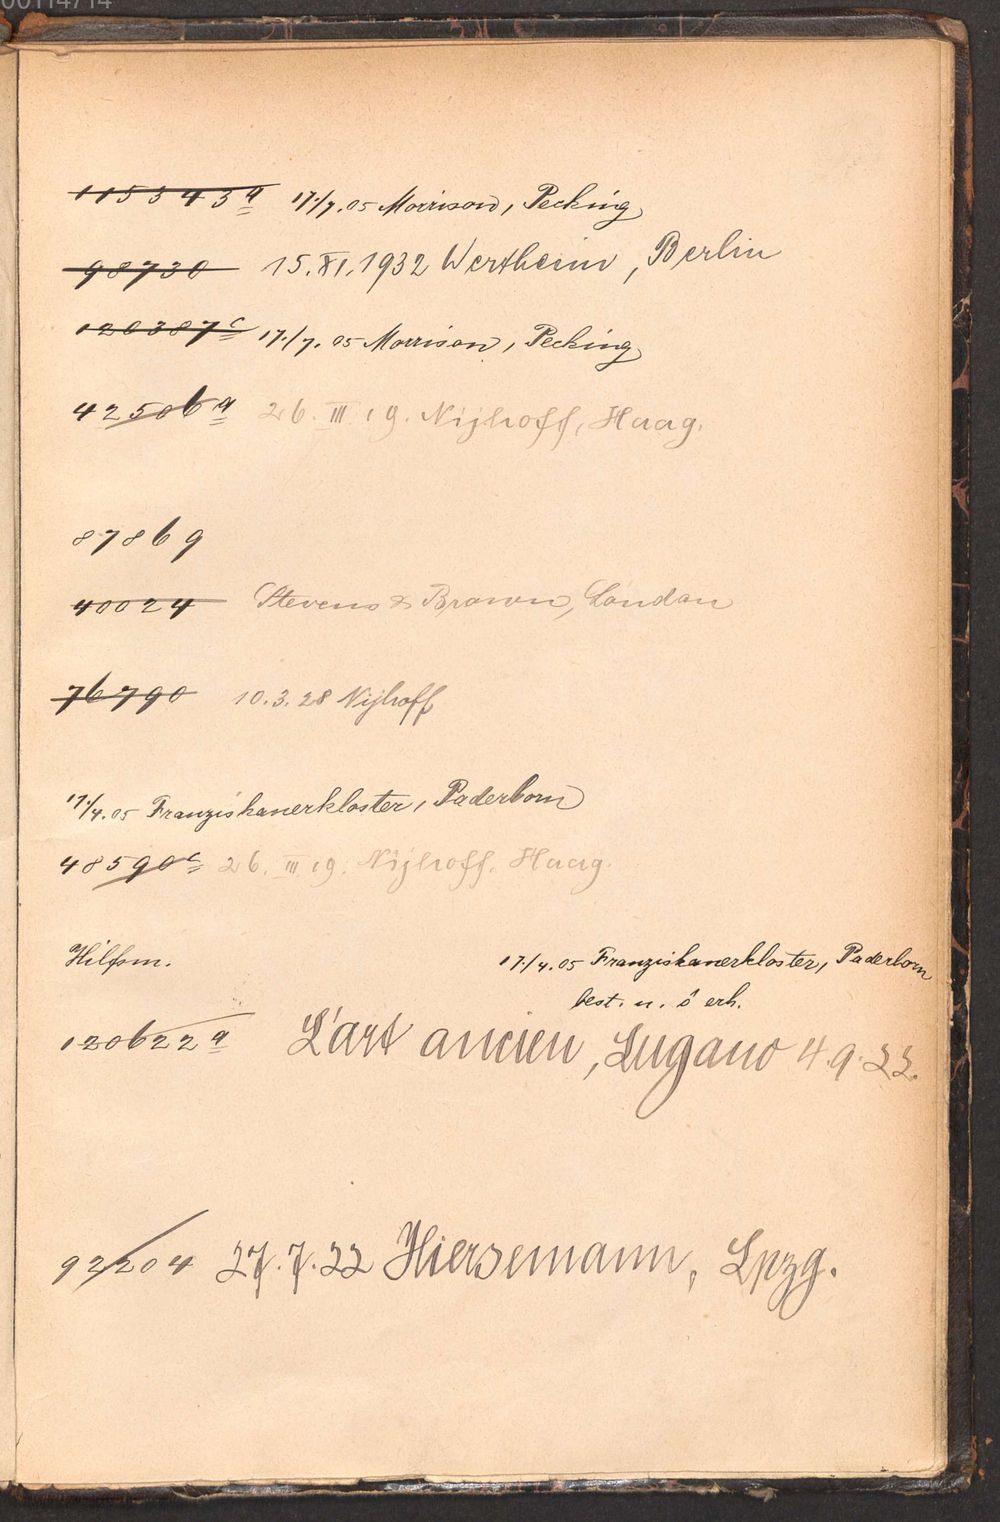 00114714
115343a 17./7.05 Morrison, Pecking
98730 15.XI.1932 Wertheim, Berlin
120387c 17./7.05 Morrison, Pecking
42506a 26. III 19. Nijhoff, Haag.
87869
40024 Stevens & Brown, London
76790 10.3.28 Nijhoff
17./4.05 Franziskanerkloster, Paderborn
48590c 26. III 19. Nijhoff. Haag.
Hilfsm. 17./4.05 Franziskanerkloster, Paderborn
best. u. ô erh.
120622a L'art ancien, Lugano 4.9.22.
92204 27.7.22 Hiersemann, Lpzg.